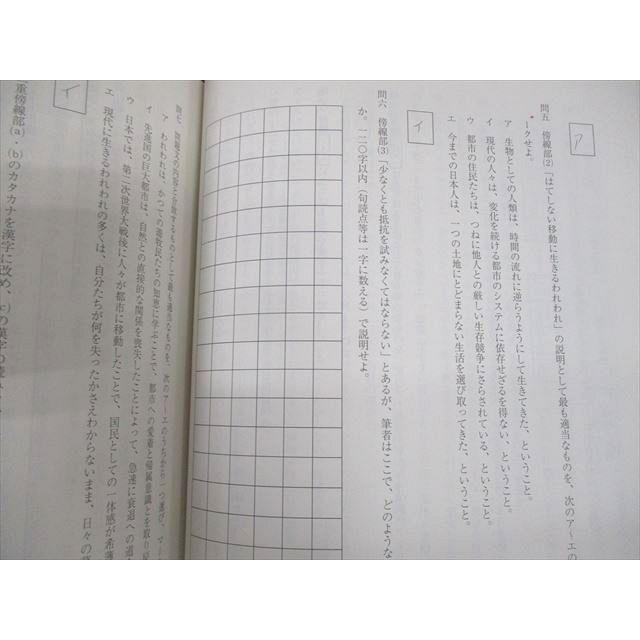 ア
問五 傍線部(2)「はてしない移動に生きるわれわれ」の説明として最も適当なものを、次のア～エの
ークせよ。
ア 生物としての人類は、時間の流れに逆らうようにして生きてきた、ということ。
イ 現代の人々は、変化を続ける都市のシステムに依存せざるを得ない、ということ。
ウ 都市の住民たちは、つねに他人との厳しい生存競争にさらされている、ということ。
エ 今までの日本人は、一つの土地にとどまらない生活を選び取ってきた、ということ。
イ
問六 傍線部(3)「少なくとも抵抗を試みなくてはならない」とあるが、筆者はここで、どのような
か。一二〇字以内(句読点等は一字に数える)で説明せよ。
問七 問題文の内容と合致するものとして最も適当なものを、次のア～エのうちから一つ選び、マー
ア われわれは、かつての遊牧民たちの知恵に学ぶことで、都市への愛着と帰属意識とを取り戻
イ 先進国の巨大都市は、自然との直接的な関係を喪失したことによって、急速に衰退への道
ウ 日本では、第二次世界大戦後に人々が都市に移動したことで、国民としての一体感が希薄
エ 現代に生きるわれわれの多くは、自分たちが何を失ったかさえわからないまま、日々の
イ
重傍線部(a)・(b)のカタカナを漢字に改め、(c)の漢字の